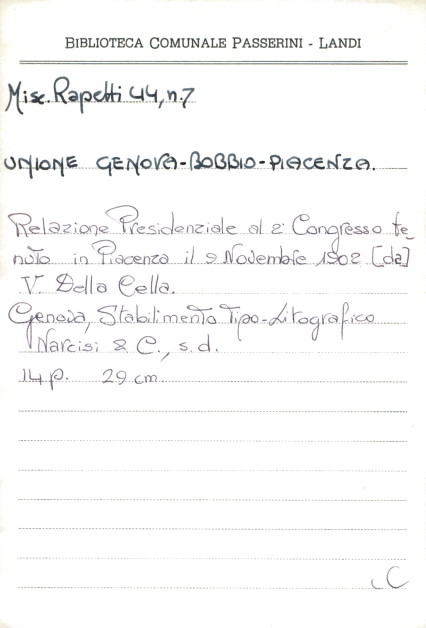 BIBLIOTECA COMUNALE PASSERINI - LANDI
Misc. Rapetti 44, n.7
UNIONE GENOVA-BOBBIO-PIACENZA.
Relazione Presidenziale al 2° Congresso te_
nuto in Piacenza il 9 Novembre 1902 [da]
V. Della Cella.
Genova, Stabilimento Tipo-Litografico
Narcisi & C., s.d.
14 p. 29 cm.
C